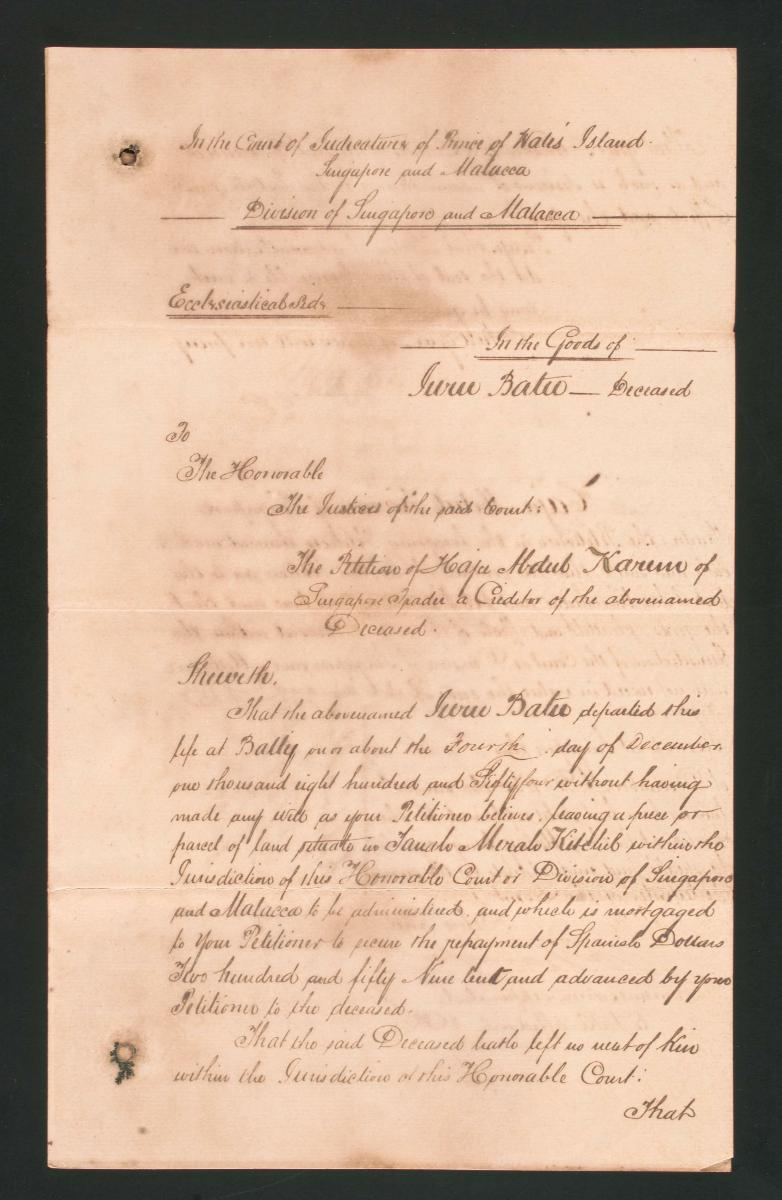 In the Court of Judicature of Prince of Wales Island
Singapore and Malacca
Division of Singapore and Malacca
Ecclesiastical Side
In the Goods of
Juru Batu — Deceased
To
The Honorable
The Justices of the said Court:
The Petition of Haji Abdul Karim of
Singapore Trader a Creditor of the abovenamed
Deceased.
Sheweth,
That the abovenamed Juru Batu departed this
life at Bally on or about the Fourth day of December
one thousand eight hundred and Fifty four without having
made any will as your Petitioner believes, leaving a piece or
parcel of land situate in Tanah Merah Kitchil within the
Jurisdiction of this Honorable Court or Division of Singapore
and Malacca to be administered, and which is mortgaged
to Your Petitioner to secure the repayment of Spanish Dollars
Two hundred and fifty Nine lent and advanced by your
Petitioner to the deceased.
That the said Deceased hath left no next of Kin
within the Jurisdiction of this Honorable Court:
That